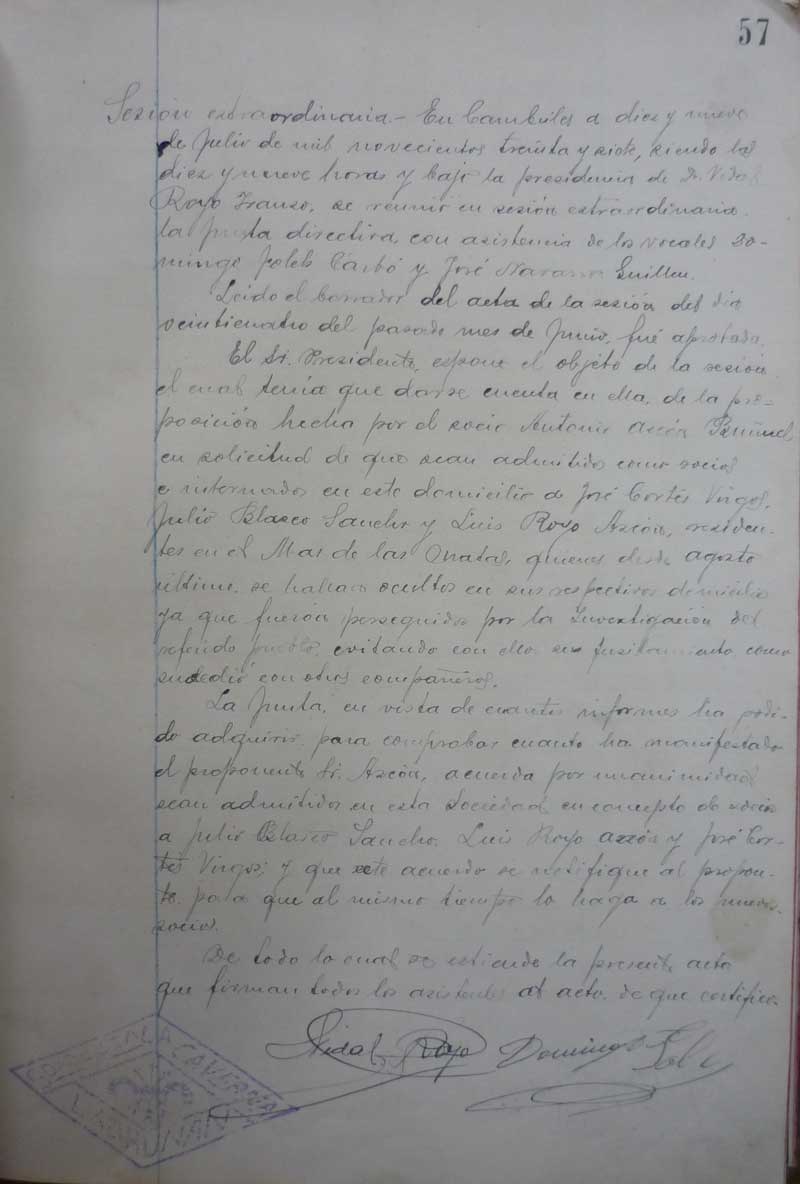 57
Sesión extraordinaria.- En Cambriles a diez y nueve
de Julio de mil novecientos treinta y siete, siendo las
diez y nueve horas y bajo la presidencia de D. Vidal
Royo Franzo, se reunió en sesión extraordinaria
la Junta directiva, con asistencia de los vocales Do-
mingo Carbó y José Navarro Guillen.
Leido el borrador del acta de la sesión del dia
veinticuatro del pasado mes de Junio, fué aprobada.
El Sr. Presidente, espone el objeto de la sesión
el cual tenía que darse cuenta en ella, de la pro-
posición hecha por el socio Antonio Azcón
en solicitud de que sean admitidos como socios
e internados en este domicilio a José Cortés Virgos,
Julio Blasco Sancho y Luis Royo Azcón, residen-
tes en el Mas de las Matas, quienes desde agosto
último, se hallan ocultos en sus respectivos domicilios
ya que fuerón perseguidos por la Investigación del
referido pueblo, evitando con ello su fusilamiento como
sucedió con otros compañeros.
La Junta, en vista de cuantos informes ha podi-
do adquirir para comprobar cuanto ha manifestado
el proponente Sr. Azcón, acuerda por unanimidad
sean admitidos en esta Sociedad en concepto de socios
a Julio Blasco Sancho, Luis Royo Azcón y José Cor-
tés Virgos; y que este acuerdo se notifique al proponen-
te para que al mismo tiempo lo haga a los nuevos
socios.
De todo lo cual se estiende la presente acta
que firman todos los asistentes al acto, de que certifico.
Vidal Royo Domingo
LA CAVERNA